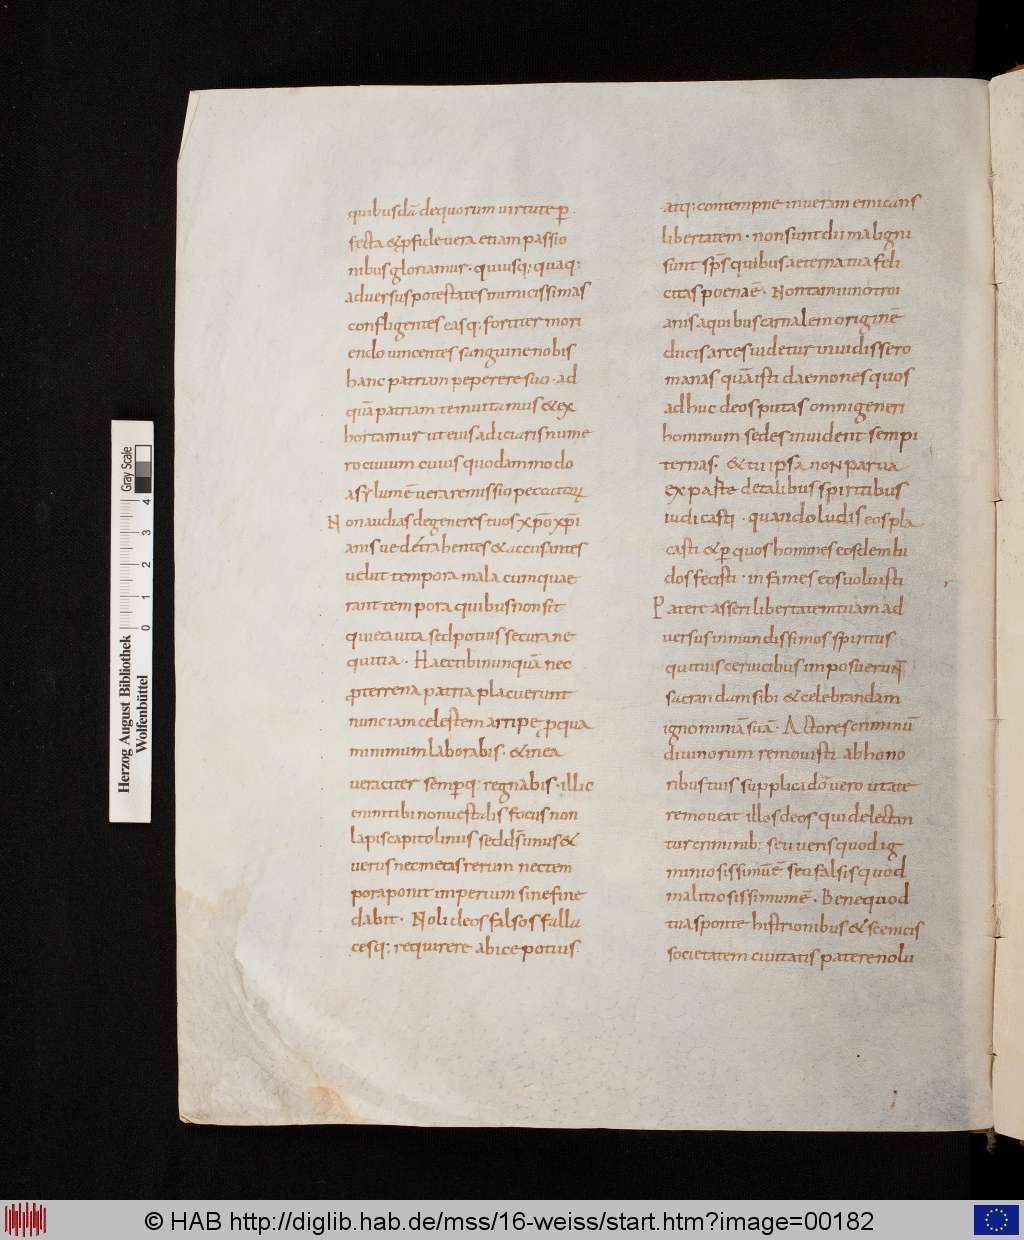 quibusdā dequorum uirtutep̲
fecta &ꝓfideuera etiam passio
nibus gloriamur · quiusq; quaq;
aduersus potestates inimicissimas
confligentes easq; fortiter mori
endo uincentes sanguine nobis
hanc patriam peperere suo · ad
quā patriam te inuitamus &ex
hortamur ut eius adiciaris nume
ro ciuium cuius quodammodo
asylumē uera remissio peccatorꝝ
Non audias degeneres tuos xp̄o xp̄i
anis ue detrahentes & accusantes
uelut tempora mala cum quae
rant tempora quibus non sit
quieta uita sed potius secura ne
quitia · Haec tibi nunquā nec
ꝓterrena patria placuerunt
nunc iam celestem arripe p̱qua
minimum laborabis · &inea
ueraciter semp̱q; regnabis · illic
enim tibi non uestalis focus non
lapis capitolinus sed d̄s unus &
uerus nec metas rerum nec tem
pora ponit imperium sine fine
dabit · Noli deos falsos falla
cesq; requirere abice potius
atq; contempne in ueram emicans
libertatem · non sunt dii maligni
sunt sp̄s quibus aeterna tua feli
citas poenaē · Non tam iuno troi
anis a quibus carnalem originē
ducis arces uidetur inuidisse ro
manas quā isti daemones quos
adhuc deos putas omni generi
hominum sedes inuident sempi
ternas · & tu ipsa non parua
ex parte de talibus spiritibus
iudicasti · quando ludis eos pla
casti &p̱ quos homines eosdem lu
dos fecisti · infames eos uoluisti
Patere asseri libertatem tuam ad
uersus inmundissimos spiritus
qui tuis ceruicibus imposuerunt
sacrandam sibi & celebrandam
ignominiā suā · Actores criminū
diuinorum remouisti ab hono
ribus tuis supplica dō uero ut a te
remoueat illos deos qui delectan
tur criminib; seu ueris quod ig
miniosissimū ē seu falsis quod
malitiosissimum ē · Bene quod
tua sponte histrionibus & scenicis
societatem ciuitatis patere nolu
Herzog August Bibliothek
Wolfenbüttel
0 1 2 3 4
Gray Scale
© HAB http://diglib.hab.de/mss/16-weiss/start.htm?image=00182